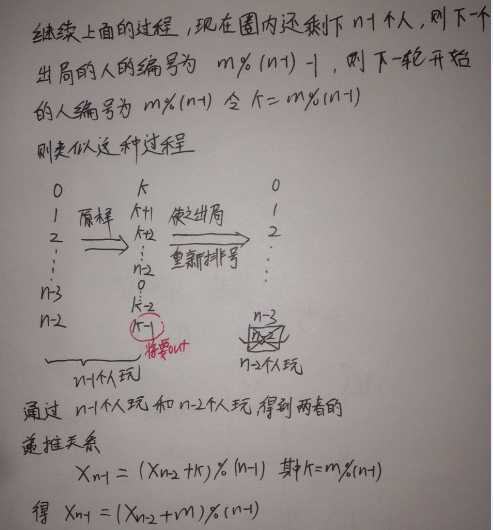 继续上面的过程,现在圈内还剩下 n-1 个人,则下一个
出局的人的编号为 m%(n-1) -1,则下一轮开始
的人编号为 m%(n-1) 令 k=m%(n-1)
则类似这种过程
0 k 0
1 原样 k+1 使之出局 1
2 k+2 重新排号 2
n-2
n-3 0
n-2 k-2 n-3
k-1 n-2
将要out
n-1个人玩 n-2个人玩
通过 n-1个人玩和n-2个人玩,得到两者的
递推关系
Xn-1 = (Xn-2+k)%(n-1) 其中k=m%(n-1)
得 Xn-1 = (Xn-2+m)%(n-1)